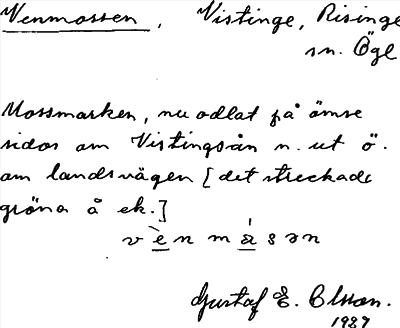 Venmossen, Vistinge, Risinge
sn. Ögl
Mossmarken, nu odlat på ömse
sidor om Vistingeån n. ut ö.
om landsvägen [det streckade
gröna å ek.]
v è n m ǻ s ə n
Gustaf E. Olsson.
1987